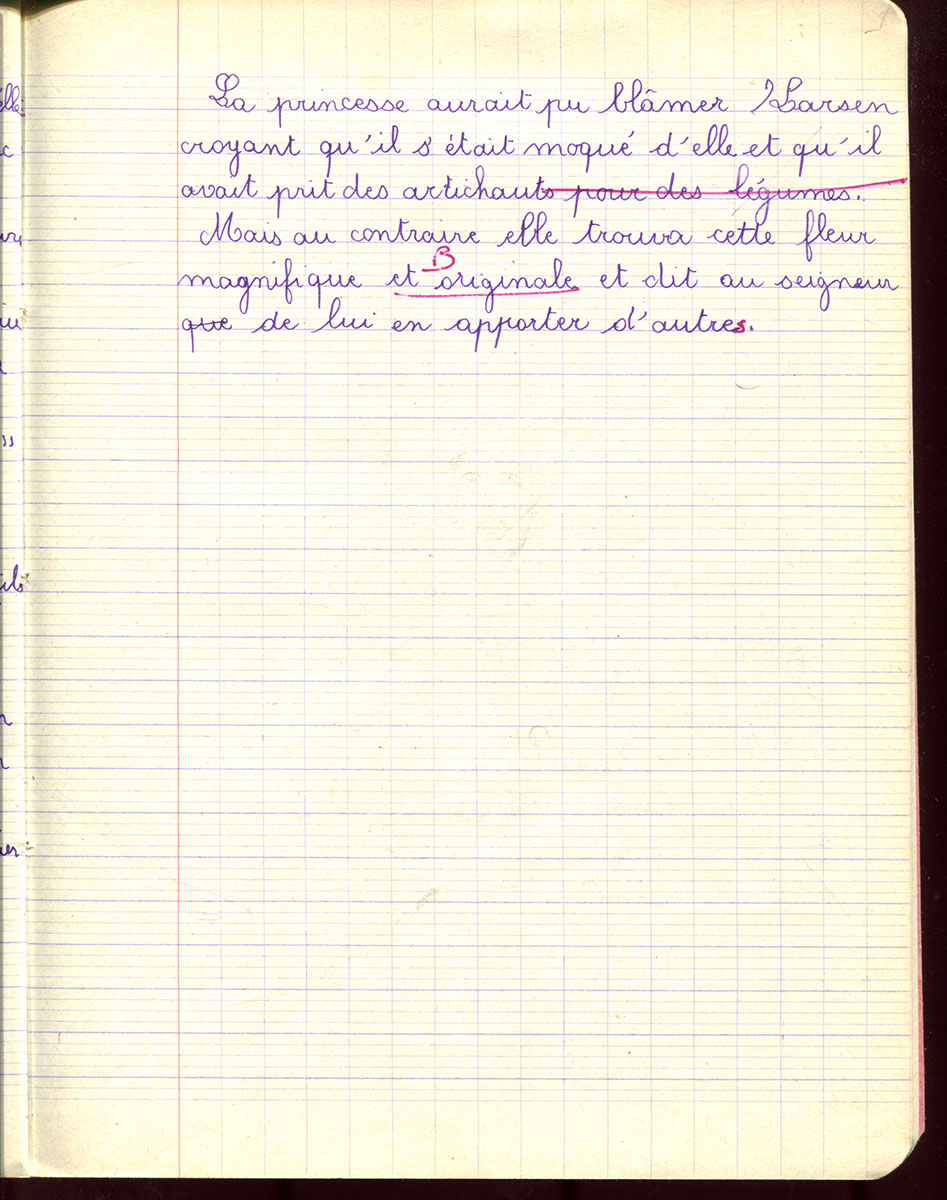 La princesse aurait pu blâmer Larsen
croyant qu'il s'était moqué d'elle et qu'il
avait prit des artichauts pour des légumes.
Mais au contraire elle trouva cette fleur
B
magnifique et originale et dit au seigneur
que de lui en apporter d'autres.